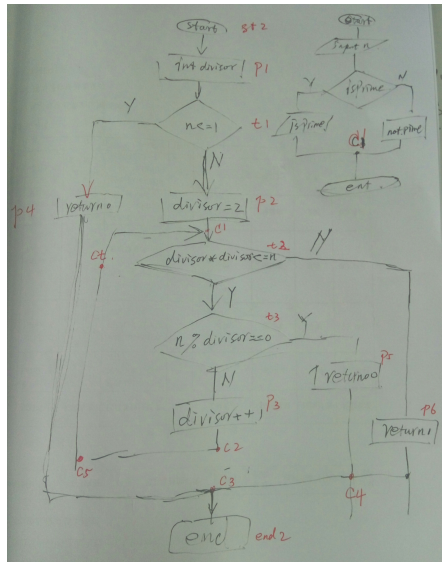 start st2
int divisor; p1
Y n<=1 t1
N
p4 return 0
divisor=2 p2
c1
t2
divisor*divisor<=n N
Y
t3
n%divisor==0 Y
N
p5
return 0
divisor++; p3
p6
return 1
c2
c5
c3
c4
end end2
start
input n
Y isPrime N
isprime
not prime
c1